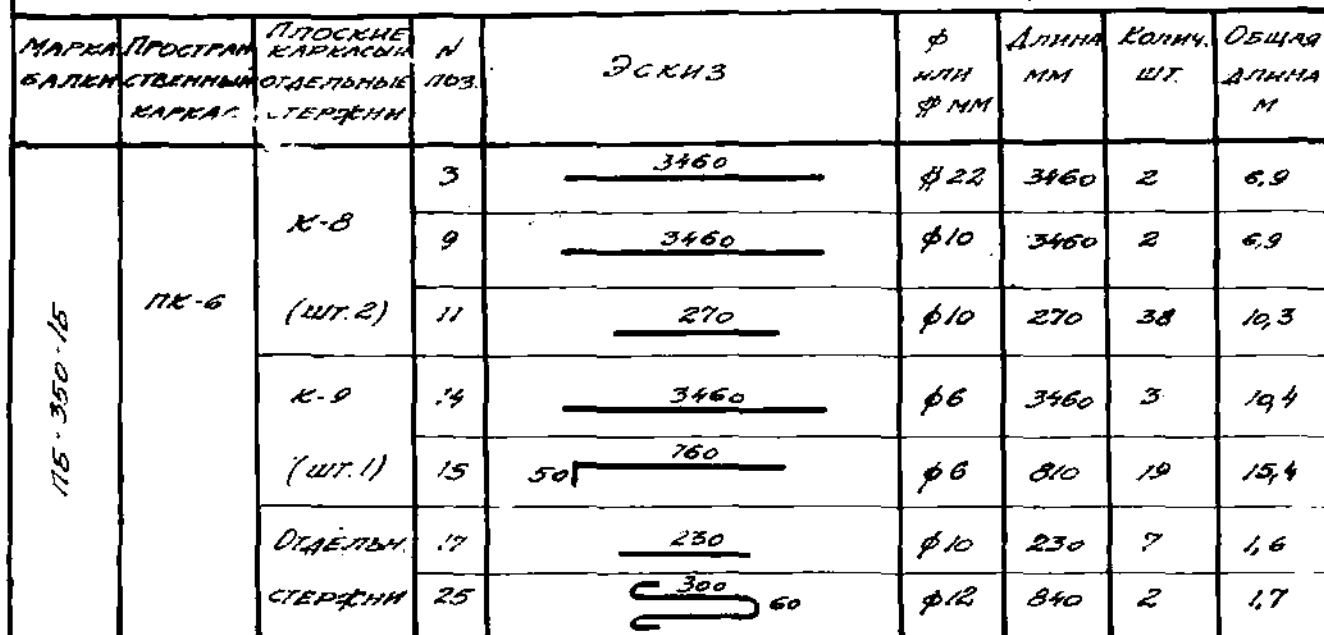 МАРКА БАЛКИ ПРОСТРАН СТВЕННЫЙ КАРКАС ПЛОСКИЕ КАРКАСЫ И ОТДЕЛЬНЫЕ СТЕРЖНИ N ПОЗ. ЭСКИЗ ϕ ИЛИ ⌀ ММ ДЛИНА ММ КОЛИЧ. ШТ. ОБЩАЯ ДЛИНА М
ПБ-350-15 ПК-6
К-8 3 3460 22 3460 2 6,9
9 3460 ϕ10 3460 2 6,9
(ШТ.2) 11 270 ϕ10 270 38 10,3
К-9 14 3460 ϕ6 3460 3 10,4
(ШТ.1) 15 50 760 ϕ6 810 19 15,4
ОТДЕЛЬН. 17 230 ϕ10 230 7 1,6
СТЕРЖНИ 25 300 60 ϕ12 840 2 1,7